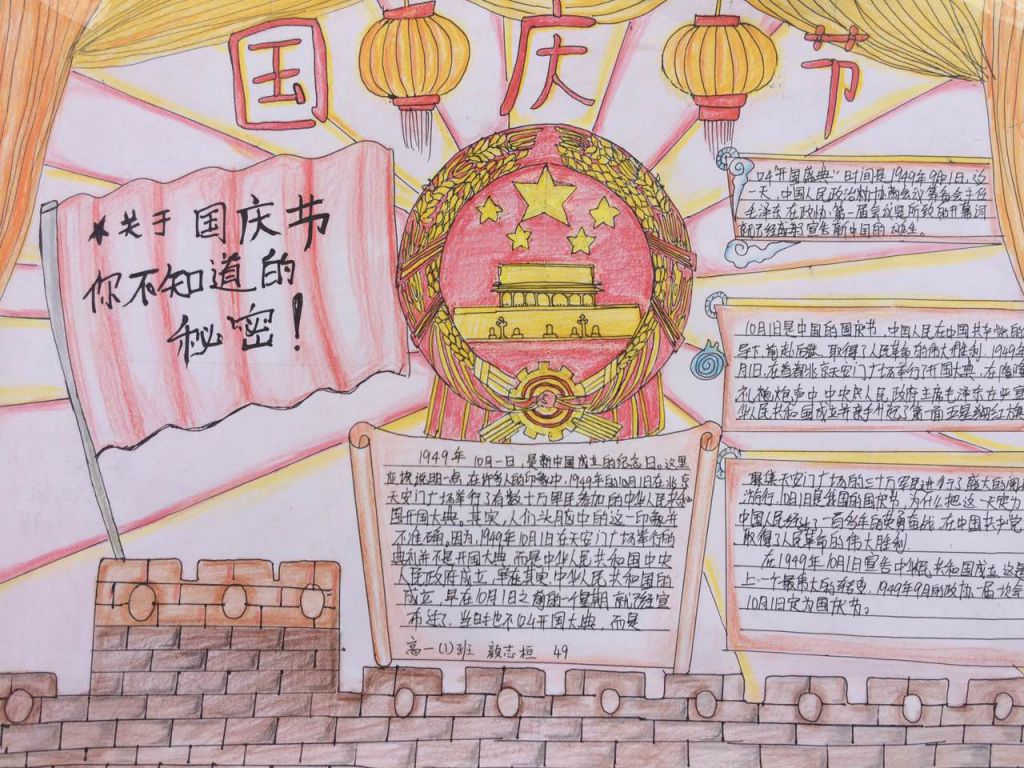 国庆节
★关于国庆节
你不知道的
秘密！
1949年10月一日，是新中国成立的纪念日。这里
应该说明一点，在许多人的印象中，1949年的10月1日在北京
天安门广场举行了有数十万军民参加的中华人民共和
国开国大典。其实，人们头脑中的这一印象并
不准确。因为，1949年10月1日在天安门广场举行的
典礼并不是开国大典，而是中华人民共和国中央
人民政府成立，早在其实，中华人民共和国的
成立，早在10月1日之前的一个星期就已经宣
布过了。当时也不叫开国大典，而是
高一(1)班 志桓 49
叫"开国盛典"时间是1949年9月1日。这
一天，中国人民政治协商会议筹备会主任
毛泽东在政协第一届会议是所致的开幕词
就已经宣告新中国的诞生。
10月1日是中国的国庆节，中国人民在中国共产党的
导下，前赴后继，取得了人民革命的伟大胜利，1949年
月1日，在首都北京天安门广场举行了开国大典，在隆隆
礼炮声中，中央人民政府主席毛泽东庄严宣
华人民共和国成立，并亲手升起了第一面五星红旗
聚集天安门广场的三十万军民进行了盛大的阅
游行，10月1日是我国的国庆节，为什么把这一天定为
中国人民经过了一百多年的英勇奋战，在中国共产党
取得了人民革命的伟大胜利
在1949年10月1日宣告中华人民共和国成立，这是
上一个最伟大的转变，1949年9月的政协一届一次会
10月1日定为国庆节。